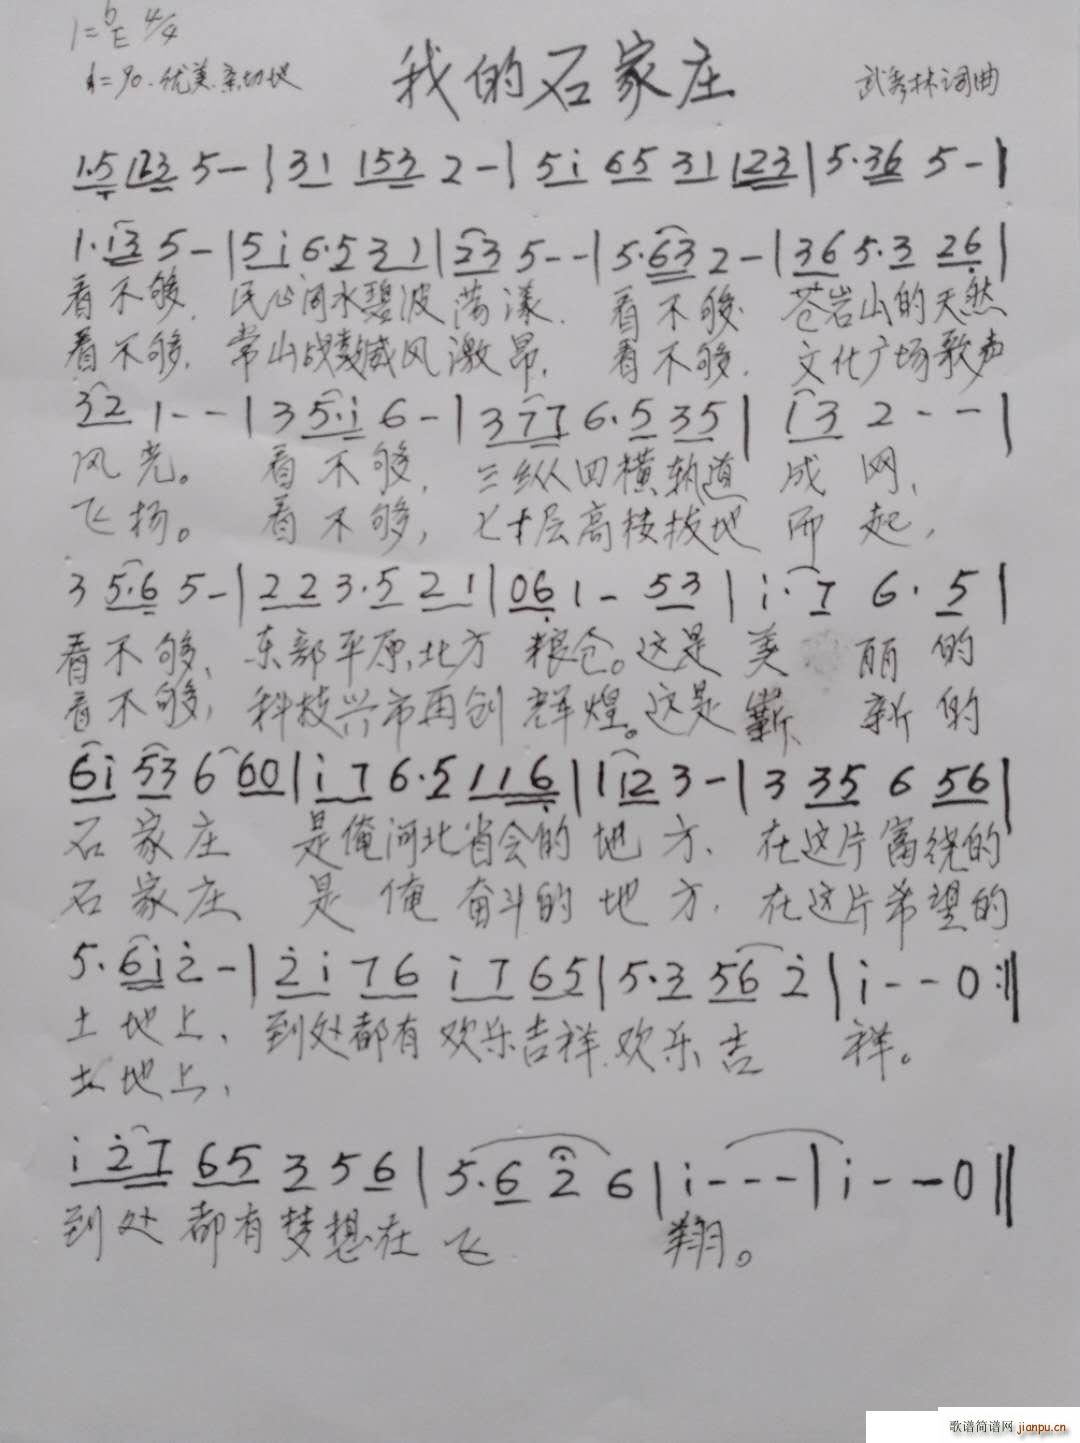 1=bE 4/4
♩=90. 优美.亲切地
我的石家庄
武秀林词曲
1.5 123 5 - | 31 153 2 - | 5i 65 31 123 | 5.36 5 - |
1.i3 5 - | 5i 6.5 31 | 23 5 - - | 5.63 2 - | 36 5.3 26 |
看不够. 民心河水碧波荡漾. 看不够. 苍岩山的天然
看不够. 常山战鼓威风激昂. 看不够. 文化广场歌声
32 1 - - | 3 5.i 6 - | 377 6.5 35 | i3 2 - - |
风光。 看不够, 三纵四横轨道 成网、
飞扬。 看不够, 七十层高楼拔地 而起,
3 5.6 5 - | 22 3.5 21 | 06 1 - 53 | i. 7 6. 5 |
看不够、 东部平原,北方 粮仓。这是 美 丽 的
看不够, 科技兴市再创 辉煌。这是 崭 新 的
6i 53 6 60 | i7 6.5 116 | 1 12 3 - | 3 35 6 56 |
石家庄 是俺河北省会的 地方、 在这片富饶的
石家庄 是俺 奋斗的 地方. 在这片希望的
5.6i 2 - | 2i 76 i7 65 | 5.3 56 2 | i - - 0 :||
土地上、 到处都有 欢乐吉祥.欢乐吉 祥。
土地上,
i 27 65 3 5 6 | 5.6 2 6 | i - - - | i - - 0 ||
到处都有梦想在飞 翔。
歌谱简谱网 jianpu.cn